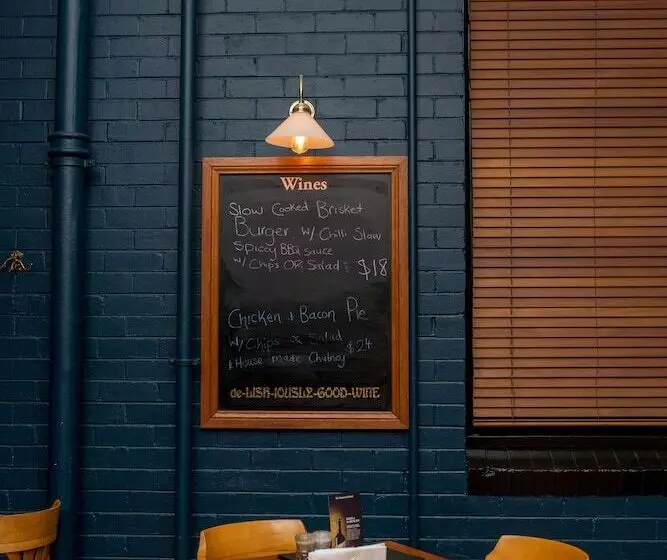 Wines
Slow Cooked Brisket
Burger w/ Chilli Slaw
Spicey BBQ sauce
w/ Chips OR Salad : $18
Chicken + Bacon Pie
w/ Chips or Salad
+ House made Chutney $24
de-LISH-IOUSLY-GOOD-WINE